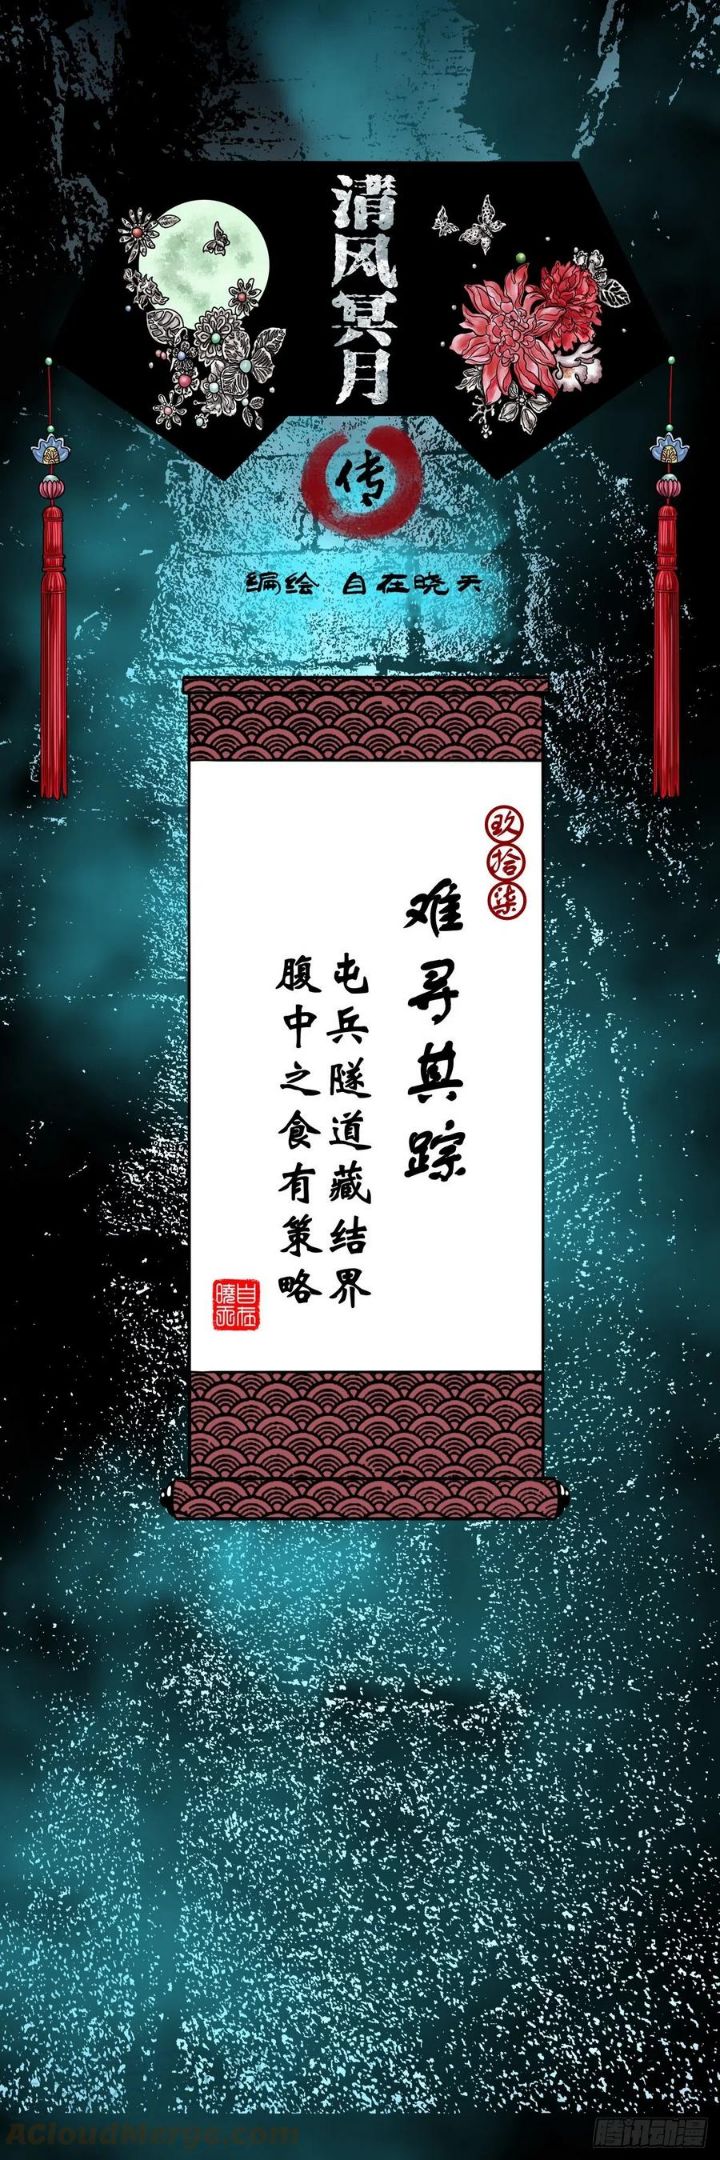 清风冥月
传
编绘 自在晓天
玖拾柒
难寻其踪
屯兵隧道藏结界
腹中之食有策略
自在
曉天
ACloudMerge.com
腾讯动漫